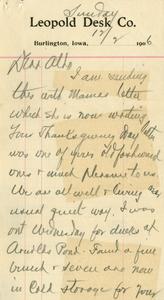 Sunday
Leopold Desk Co.
Burlington, Iowa, 12/2 1906
Dear Aldo
I am sending
this with Mamas letter
which she is now writing
Your Thanksgiving Day letter
was one of your old fashioned
ones & much pleasure to us.
We are all well & living our
usual quiet way. I was
out Wednesday for ducks at
Arnolds Pond. Found a fine
bunch & seven are now
in Cold storage for your